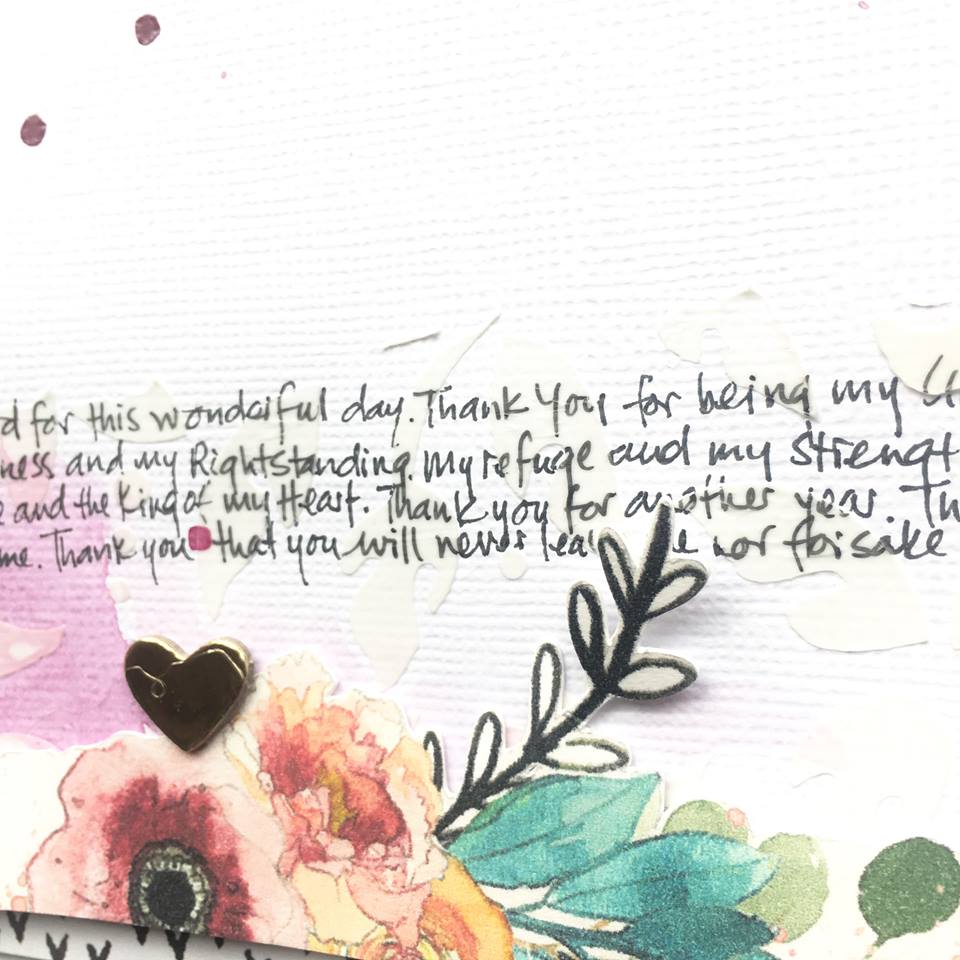 d for this wonderful day. Thank You for being my
ness and my Rightstanding. My refuge and my Strengt
e and the King of my Heart. Thank you for another year. Th
me. Thank you that you will never lea e nor forsake